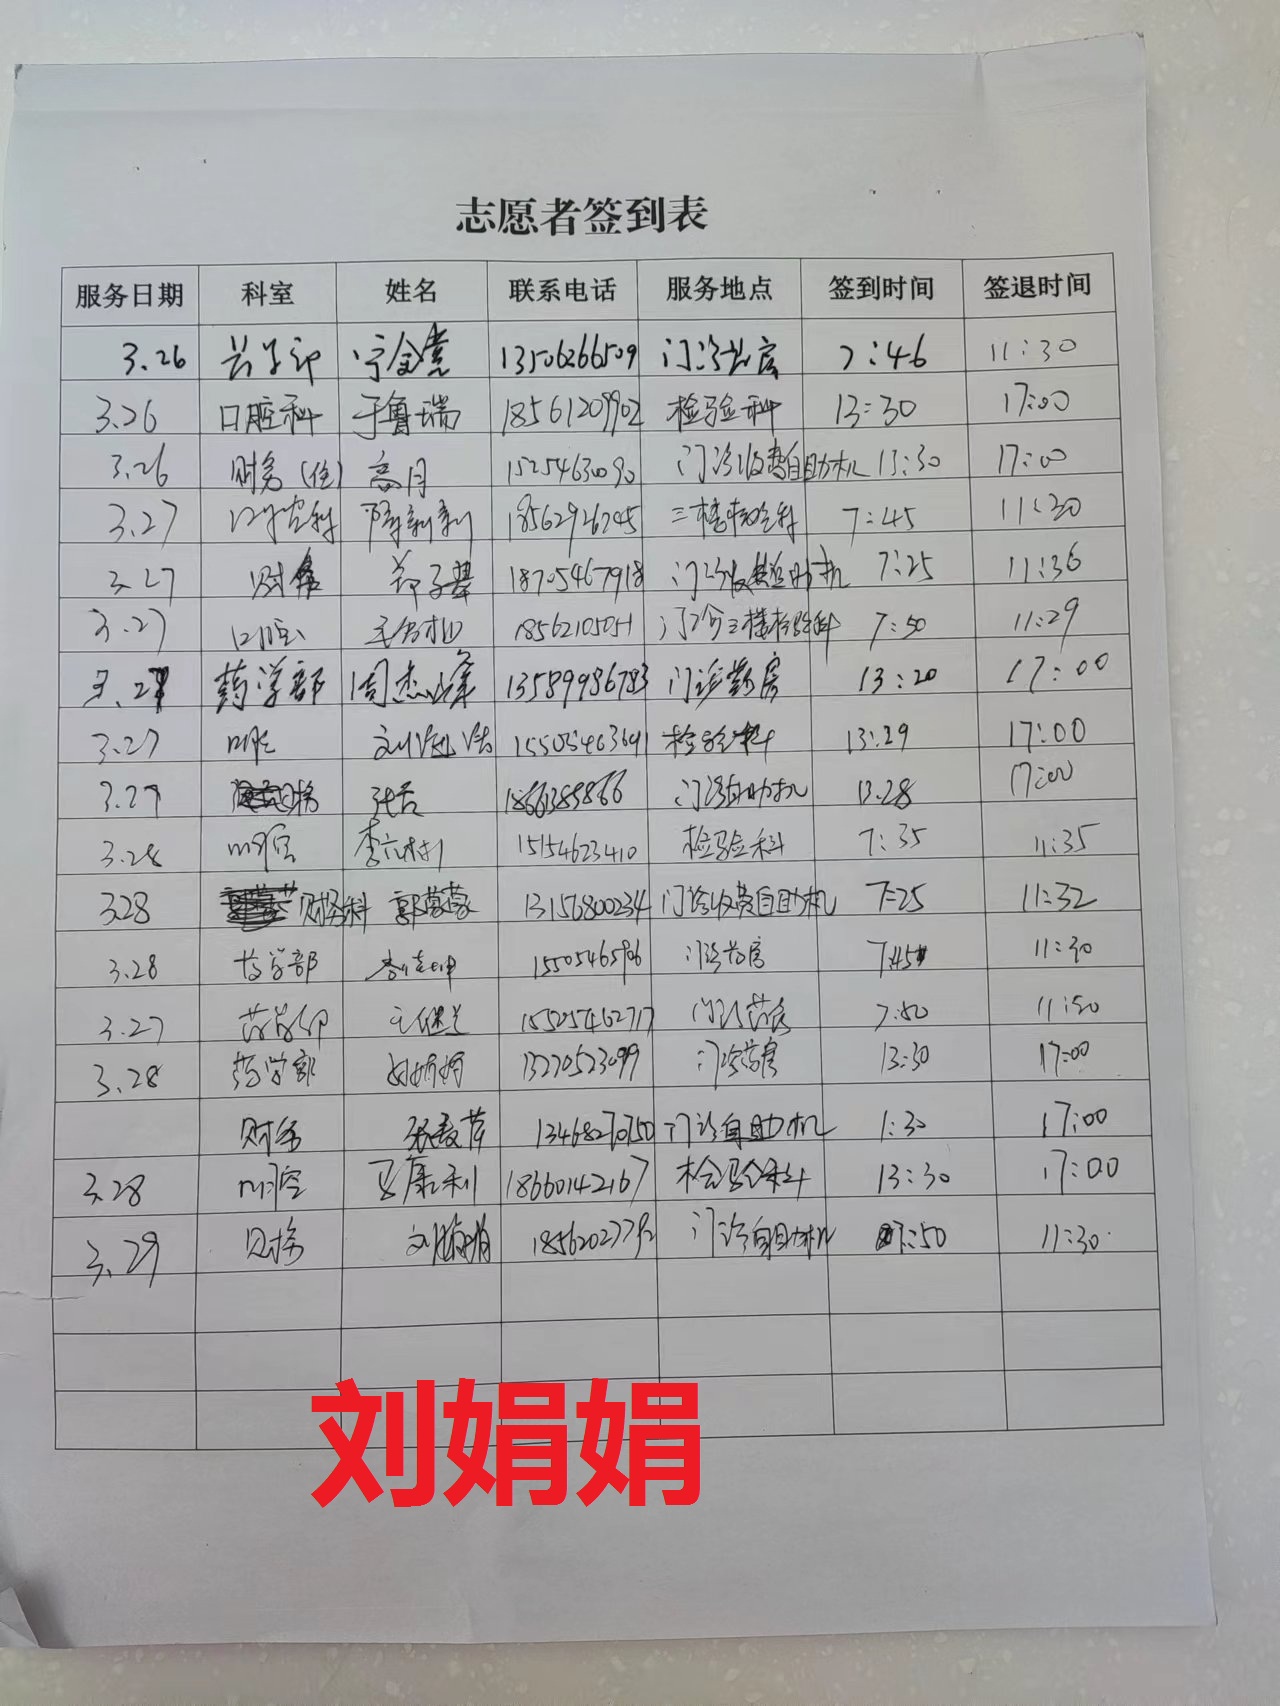 志愿者签到表
服务日期 科室 姓名 联系电话 服务地点 签到时间 签退时间
3.26 药学部 宁金亮 13506266509 门诊药房 7:46 11:30
3.26 口腔科 于鲁瑞 18561209902 检验科 13:30 17:00
3.26 财务(住) 高月 15254630090 门诊收费自助机 13:30 17:00
3.27 口腔科 18562926745 三楼检验科 7:45 11:30
3.27 财务 郑子 18705467918 门诊收费自助机 7:25 11:36
3.27 口腔 18562105051 门诊三楼检验科 7:50 11:29
3.27 药学部 周杰峰 13589986783 门诊药房 13:20 17:00
3.27 口腔 刘 15505463691 检验科 13:29 17:00
3.27 财务 18661385866 门诊自助机 13:28 17:00
3.28 口腔 李 15154623410 检验科 7:35 11:35
3.28 财务科 郭蒙蒙 13156800234 门诊收费自助机 7:25 11:32
3.28 药学部 李 15505465906 门诊药房 7:45 11:30
3.27 药学部 王继兰 15525462717 门诊药房 7:50 11:50
3.28 药学部 13270523099 门诊药房 13:30 17:00
财务 张 13468270750 门诊自助机 1:30 17:00
3.28 口腔 王康利 18660142167 检验科 13:30 17:00
3.29 财务 刘娟娟 18562027792 门诊自助机 7:50 11:30
刘娟娟